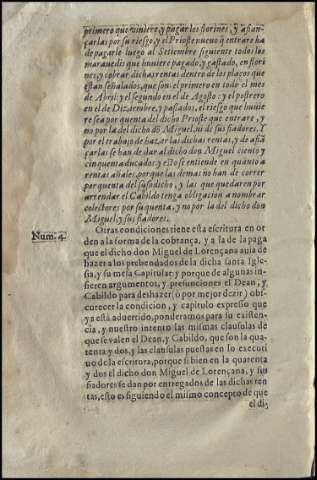 primero que viniere, y pagar los fiorines, y afian-
çarlas por su riesgo, y el Prioste nueuo q̃ entrare ha
de pagarle luego al Setiembre siguiente todos los
marauedis que huuiere pagado, y gastado, en fiori
nes, y cobrar dichas rentas dentro de los plaços que
estan señalados, que son: el primero en todo el mes
de Abril: y el segundo en el de Agosto: y el postrero
en el de Diziembre, y passados, el riesgo que huuie
re sea por quenta del dicho Prioste que entrare, y
no por la del dicho dõ Miguel, ni de sus fiadores. Y
por el trabajo de hazer las dichas rentas, y de afiã
çarlas se han de dar al dicho don Miguel ciento y
cinquenta ducados, y esto se entiende en quanto a
rentas añales, porque las demas no han de correr
por quenta del susodicho, y las que quedaren por
arrendar el Cabildo tenga obligacion a nombrar
colectores por su quenta, y no por la del dicho don
Miguel, y sus fiadores.
Num. 4.
Otras condiciones tiene esta escritura en or
den a la forma de la cobrança, y a la de la paga
que el dicho don Miguel de Lorençana auia de
hazer a los prebendados de la dicha santa Igle-
sia, y su mesa Capitular: y porque de algunas in-
fieren argumentos, y presunciones el Dean, y
Cabildo para deshazer (ò por mejor dezir) obs-
curecer la condicion, y capitulo expresso que
ya està aduertido, ponderamos para su existen-
cia, y nuestro intento las mismas clausulas de
que se valen el Dean, y Cabildo, que son la qua-
renta y dos, y las clausulas puestas en lo execut
uo de la escritura, porque si bien en la quarenta
y dos el dicho don Miguel de Lorençana, y sus
fiadores se dan por entregados de las dichas ren
tas, esto es siguiendo el mismo concepto de que
el di-